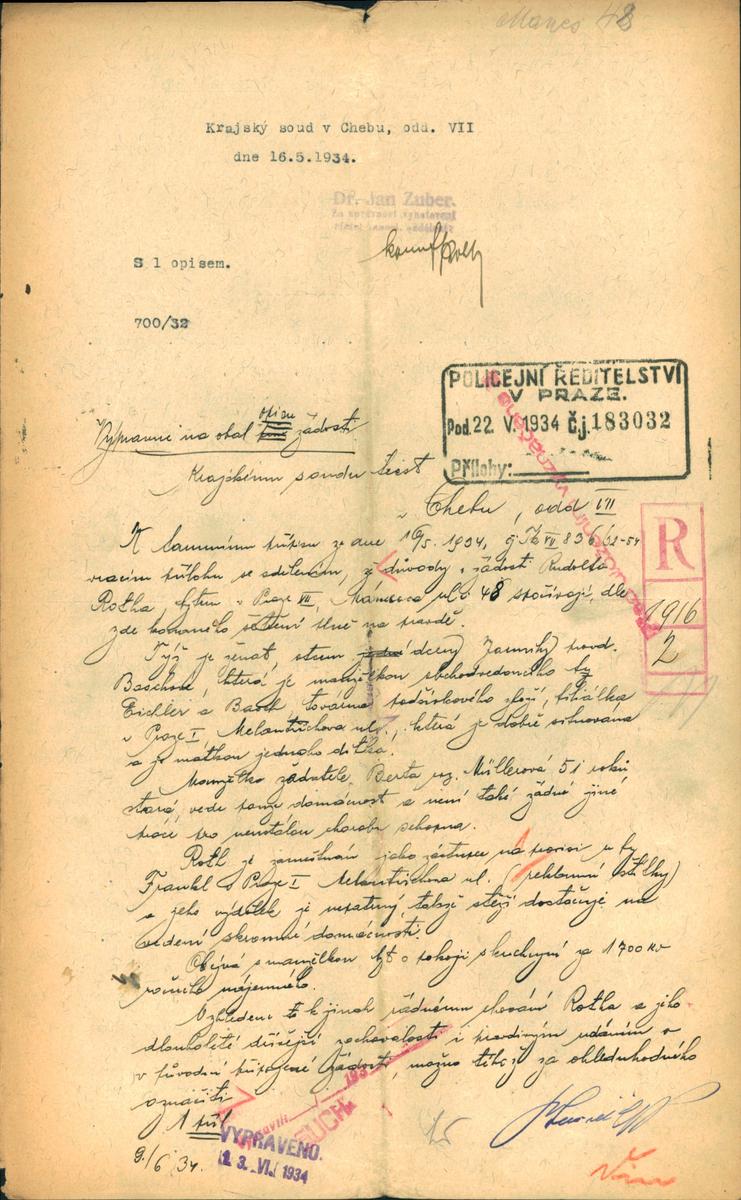 Manes 48
Krajský soud v Chebu, odd. VII
dne 16.5.1934.
Dr. Jan Zuber.
Za správnost vyhotovení
S 1 opisem.
700/32
POLICEJNÍ ŘEDITELSTVÍ
V PRAZE.
Pod. 22. V. 1934 Č.j. 183032
Přílohy:
opisu
na obal žádosti
Krajskému soudu trest
v Chebu, odd VII
K tamnímu přípisu ze dne 16/5. 1934, 
vracím přílohu se sdělením, že důvody žádosti Rudolfa
Rotha, bytem v Praze VII, Manesova ul. č 48 spočívají, dle
zde konaného šetření plně na pravdě.
R
1916
2
Týž je ženat, otcem dcery provd.
Baschové, která je manželkou obchodvedoucího fy
Eichler a Basch, továrna filiálka
v Praze I, Melantrichova ul., která je dobře situována
a je matkou jednoho dítka.
Manželka žadatele, Berta roz. Müllerová 51 roků
stará, vede pouze domácnost a není také žádné jiné
práce pro neustálou chorobu schopna.
Roth je zaměstnán jako zástupce na provisi u fy
Frankl v Praze I Melantrichova ul. (reklamní )
a jeho výdělek je nepatrný, takže stěží dostačuje na
vedení skromné domácnosti.
Obývá s manželkou byt o pokoji s kuchyní za 1700 Kč
ročního nájemného.
Vzhledem k jinak řádnému chování Rotha a jeho
dlouholeté dřívější zachovalosti i pravdivým udáním v
v původní připojené žádosti, možno téhož za ohleduhodného
označiti.
1 příl
9./6 34.
VYPRAVENO.
2 3. VI. 1934